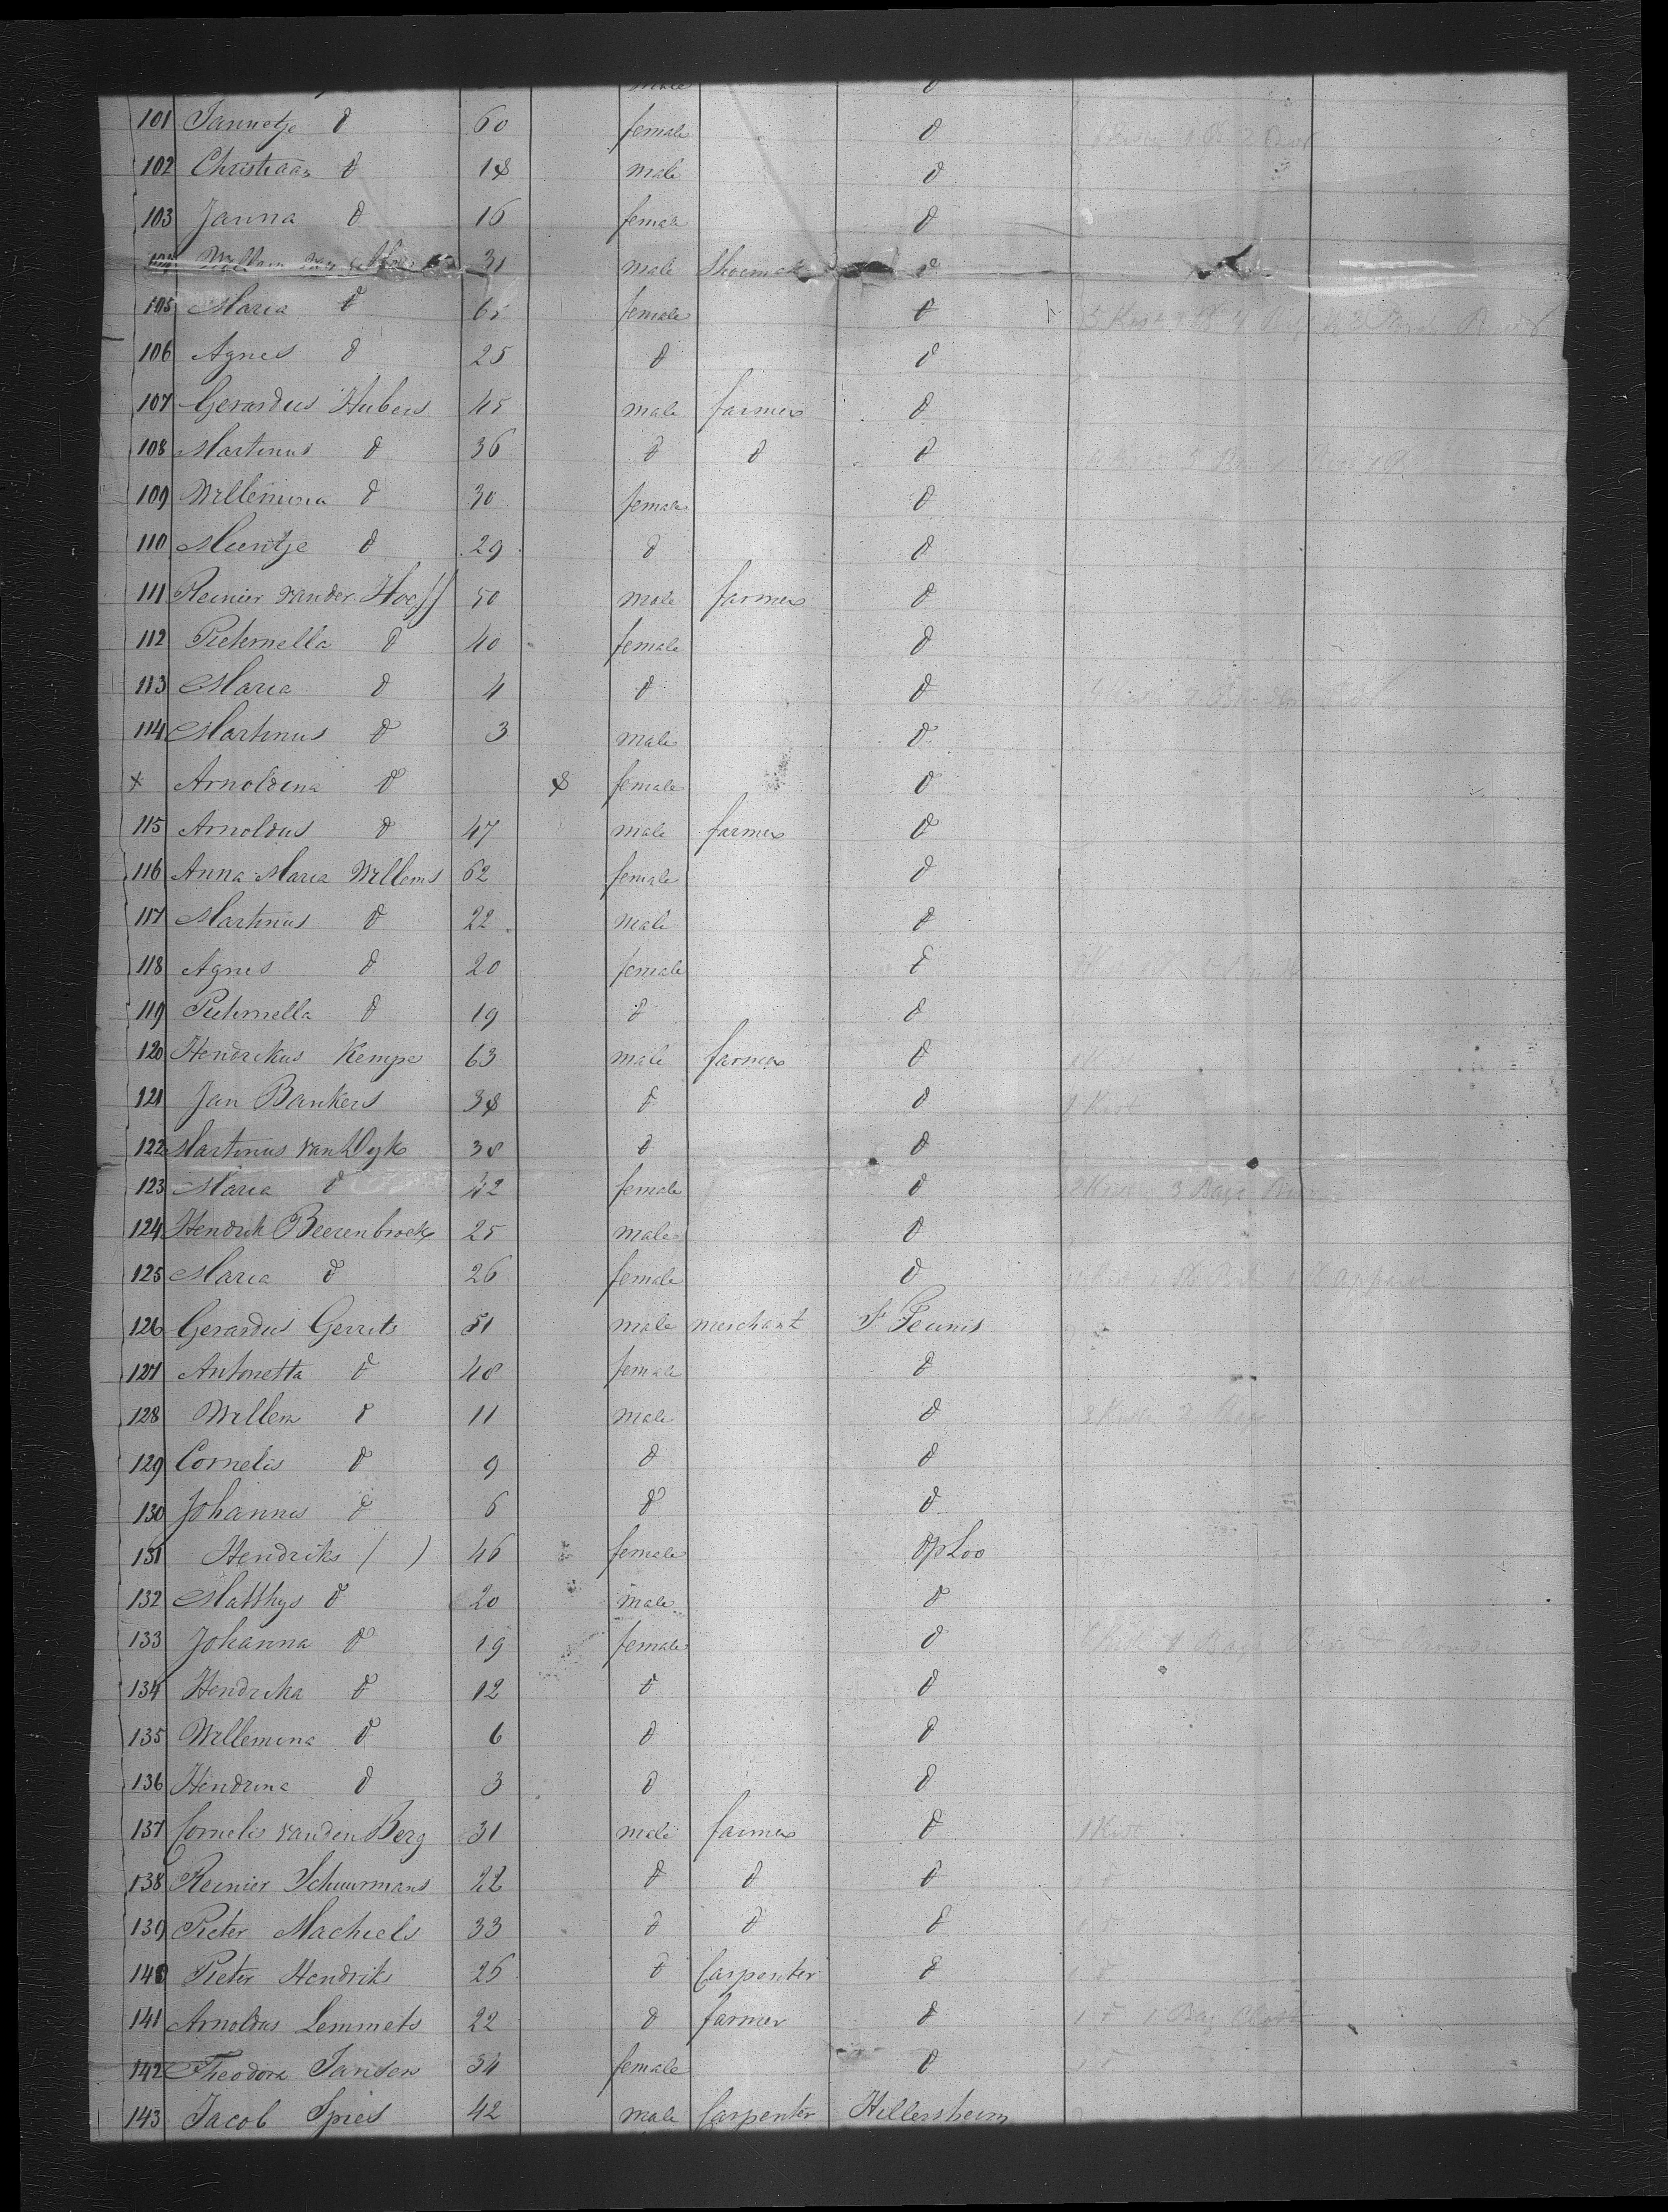 male d
101 Jannetje d 60 female d
102 Christiaan d 18 male d
103 Janna d 16 female d
104 Willem van 31 male Shoemak d
105 Maria d 65 female d
106 Agnes d 25 d d
107 Gerardus Hubers 45 male farmer d
108 Martinus d 36 d d d
109 Willemina d 30 female d
110 Meentje d 29 d d
111 Reinier van der Hoeff 50 male farmer d
112 Pieternella d 40 female d
113 Maria d 4 d d
114 Martinus d 3 male d
x Arnoldina d 8 female d
115 Arnoldus d 47 male farmer d
116 Anna Maria Willems 62 female d
117 Martinus d 22 male d
118 Agnes d 20 female d
119 Pieternella d 19 d d
120 Hendrikus Kempe 63 male farmer d
121 Jan Bankers 38 d d 1 Kist
122 Martinus van Dyk 38 d d
123 Maria d 42 female d 2 Kisten 3 Bags
124 Hendrik Beerenbroek 25 male d
125 Maria d 26 female d
126 Gerardus Gerrits 51 male merchant St Teunis
127 Antonetta d 48 female d
128 Willem d 11 male d 3 Kisten 2 Bags
129 Cornelis d 9 d d
130 Johannes d 6 d d
131 Hendriks ( ) 46 female OpLoo
132 Matthys d 20 male d
133 Johanna d 19 female d
134 Hendrika d 12 d d
135 Willemina d 6 d d
136 Hendrina d 3 d d
137 Cornelis van den Berg 31 male farmer d 1 Kist
138 Reinier Schuurmans 22 d d d 1 d
139 Pieter Machiels 33 d d d 1 d
140 Pieter Hendriks 26 d Carpenter d 1 d
141 Arnoldus Lemmets 22 d farmer d 1 d 1 Bag
142 Theodora Jansen 34 female d 1 d
143 Jacob Spies 42 male Carpenter Hillersheim